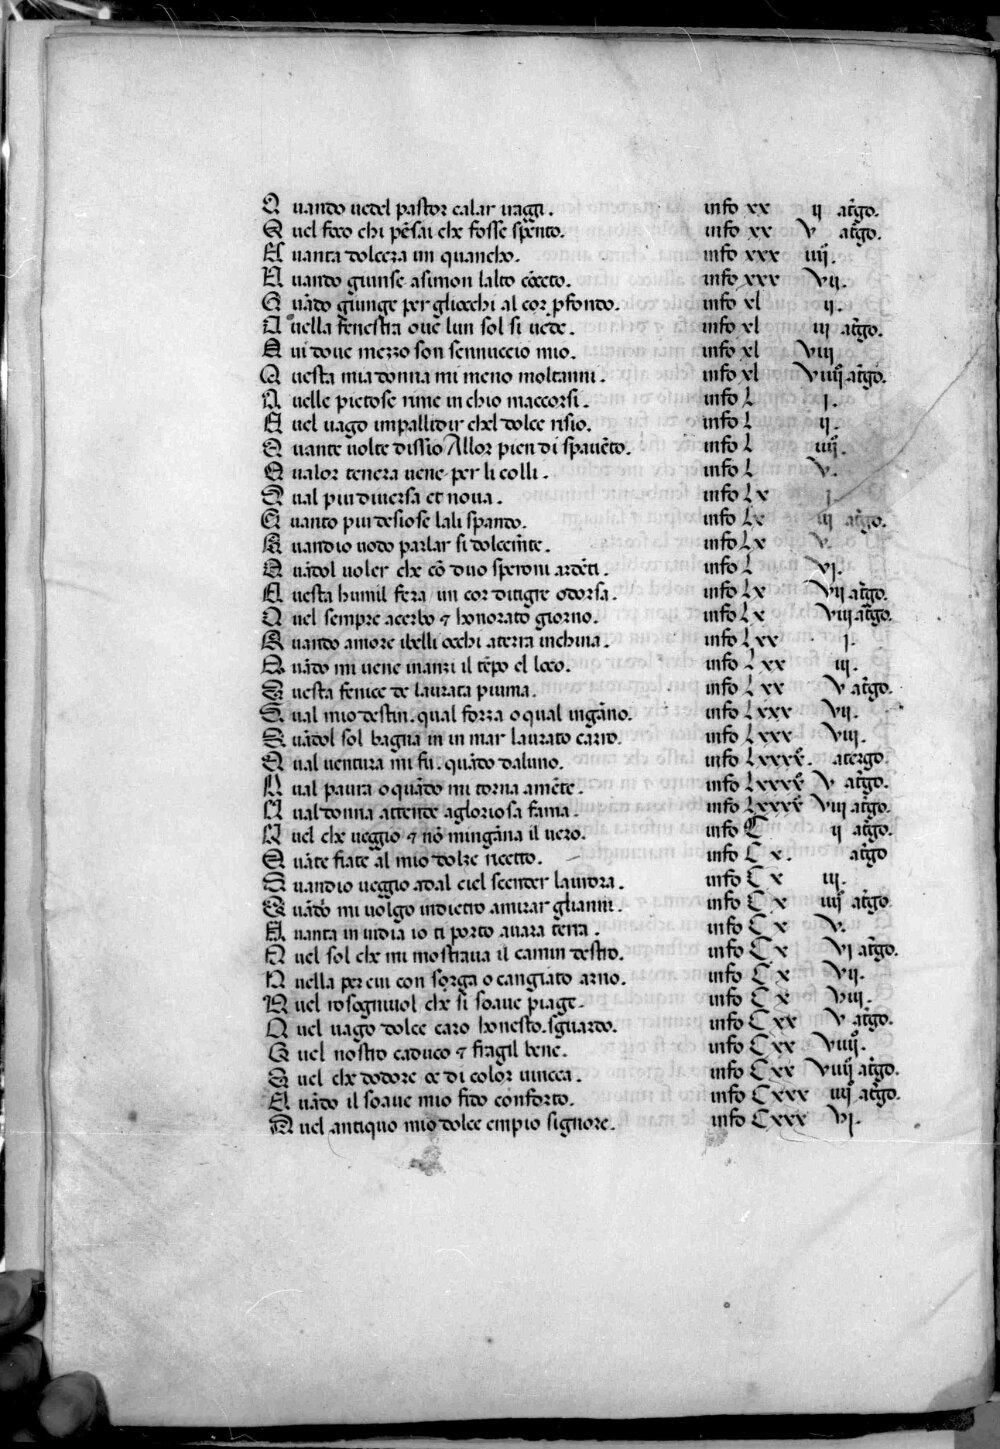 Q uando uedel pastor calar iraggi. info xx ij at͛go.
Q uel foco chi pēsai che fosse spēnto. info xx v at͛go.
Q uanta dolceza un quancho. info xxx iiij.
Q uando giunse asimon lalto cōceto. info xxx vij.
Q uādo giunge per gliocchi al cor ꝓfondo. info xl ij.
Q uella fenestra oue lun sol si uede. info xl iij at͛go.
Q ui doue mezzo son sennuccio mio. info xl viij.
Q uesta mia donna mi meno moltanni. info xl viiij at͛go.
Q uelle pietose rime in chio maccorsi. info L j.
Q uel uago impallidir chel dolce risio. info L ij.
Q uante uolte dissio Allor pien di spauēto. info L iiij.
Q ualor tenera uene per li colli. info L v.
Q ual piu diuersa et noua. info Lx j.
Q uanto piu desiose lali spando. info Lx iij at͛go.
Q uandio uodo parlar si dolcem̄te. info Lx v.
Q uādol uoler che cō duo speroni ardēti. info L vj.
Q uesta humil fera un cor ditigre odorsa. info Lx vij at͛go.
Q uel sempre acerbo ⁊ honorato giorno. info Lx viij at͛go.
Q uando amore ibelli occhi aterra inchina. info Lxx j.
Q uādo mi uene inanzi il tēpo el loco. info Lxx iij.
Q uesta fenice de laurata piuma. info Lxx v at͛go.
Q ual mio destin. qual forza o qual ingāno. info Lxxx vij.
Q uādol sol bagna in in mar laurato carro. info Lxxx viij.
Q ual uentura mi fu. quādo daluno. info Lxxxx. atergo.
Q ual paura o quādo mi torna amēte. info Lxxxx v at͛go.
Q ual donna attende agloriosa fama. info Lxxxx vij at͛go.
Q uel che ueggio ⁊ nō mingāna il uero. info C ij at͛go.
Q uāte fiate al mio dolze ricetto. info Cx. at͛go
Q uandio ueggio adal ciel scender laurora. info Cx iij.
Q uādo mi uolgo indietro amirar glianni. info Cx iiij at͛go.
Q uanta in uidia io ti porto auara terra. info Cx v.
Q uel sol che mi mostraua il camin destro. info Cx vj at͛go.
Q uella per cui con sorga o cangiato arno. info Cx vij.
Q uel rosegnuiol che si soaue piage. info Cx viij.
Q uel uago dolce caro honesto. sguardo. info Cxx v at͛go.
Q uel nostro caduco ⁊ fragil bene. info Cxx viiij.
Q uel che dodore ce di color uincea. info Cxx viiij at͛go.
Q uādo il soaue mio fido conforto. info Cxxx iiij at͛go.
Q uel antiquo mio dolce empio signore. info Cxxx vj.